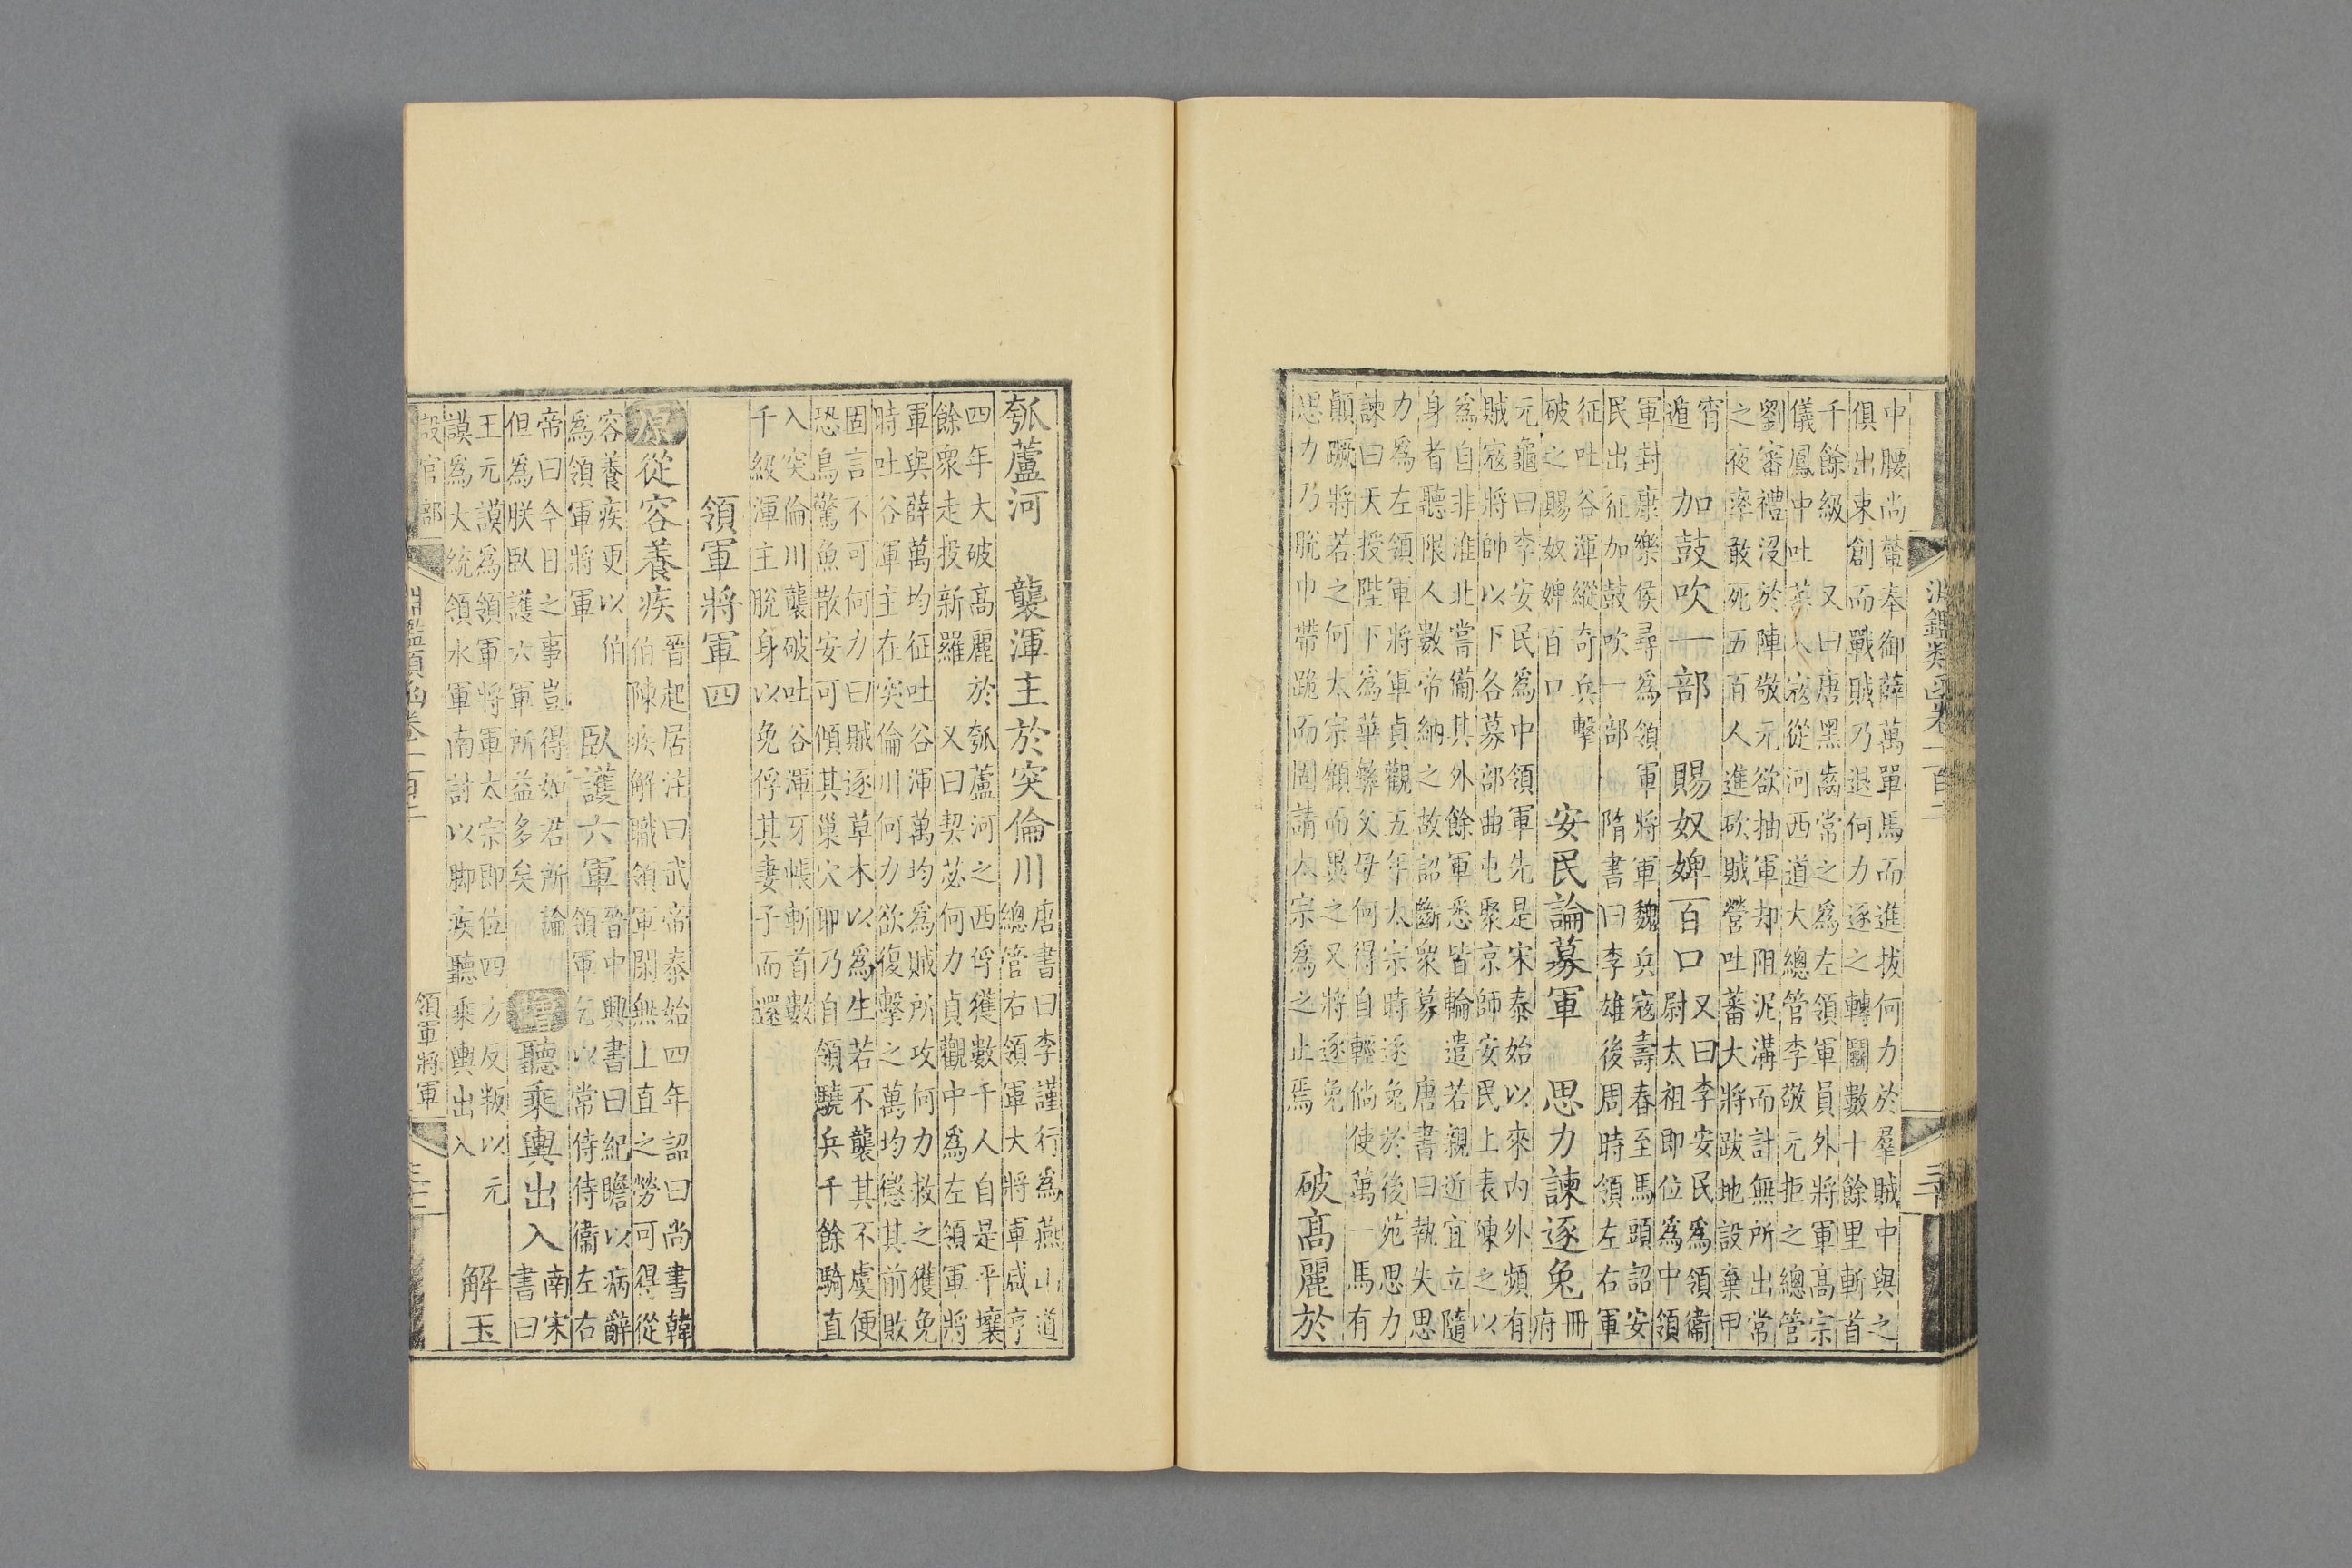 中腰尚輦奉御薛萬單馬而進拔何力於羣賊中與之
俱出束創而戰賊乃退何力逐之轉鬭數十餘里斬首
千餘級　又曰唐黑齒常之爲左領軍員外將軍高宗
儀鳳中吐蕃入寇從河西道大總管李敬元拒之總管
劉審禮沒於陣敬元欲抽軍却阻泥溝而計無所出常
之夜率敢死五百人進砍賊營吐蕃大將跋地設棄甲
宵
遁
加鼓吹一部　賜奴婢百口
又曰李安民爲領衛
尉太祖即位爲中領
軍封康樂侯尋爲領軍將軍魏兵寇壽春至馬頭詔安
民出征加鼓吹一部　隋書曰李雄後周時領左右軍
征吐谷渾縱奇兵擊
破之賜奴婢百口
安民論募軍　思力諫逐兔
冊
府
元龜曰李安民爲中領軍先是宋泰始以來內外頻有
賊寇將帥以下各募部曲屯聚京師安民上表陳之以
爲自非淮北嘗備其外餘軍悉皆輪遣若親近宜立隨
身者聽限人數帝納之故詔斷衆募　唐書曰執失思
力爲左領軍將軍貞觀五年太宗時逐兔於後苑思力
諫曰天授陛下爲華彝父母何得自輕倘使萬一馬有
顛蹶將若之何太宗顧而異之又將逐兔
思力乃脫巾帶跪而固請太宗爲之止焉
破高麗於
瓠蘆河　襲渾主於突倫川
唐書曰李謹行爲燕山道
總管右領軍大將軍咸亨
四年大破高麗於瓠蘆河之西俘獲數千人自是平壤
餘衆走投新羅　又曰契苾何力貞觀中爲左領軍將
軍與薛萬均征吐谷渾萬均爲賊所攻何力救之獲免
時吐谷渾主在突倫川何力欲復擊之萬均懲其前敗
固言不可何力曰賊逐草木以爲生若不襲其不虞便
恐鳥驚魚散安可傾其巢穴耶乃自領驍兵千餘騎直
入突倫川襲破吐谷渾牙帳斬首數
千級渾主脫身以免俘其妻子而還
領軍將軍四
原從容養疾
晉起居注曰武帝泰始四年詔曰尚書韓
伯陳疾解職領軍閑無上直之勞可得從
容養疾更以伯
爲領軍將軍
臥護六軍
晉中興書曰紀瞻以病辭
領軍乞以常侍侍衞左右
帝曰今日之事豈得如君所論
但爲朕臥護六軍所益多矣
增聽乘輿出入
南宋
書曰
王元謨爲領軍將軍太宗即位四方反叛以元
謨爲大統領水軍南討以脚疾聽乘輿出入
解玉